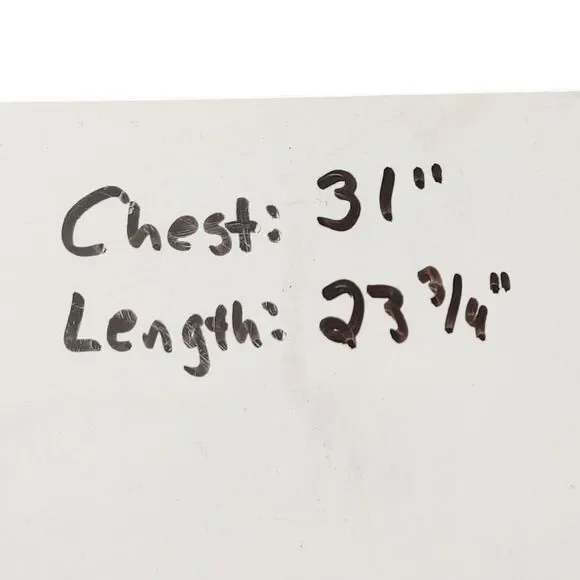 Chest: 31"
Length: 23 3/4"